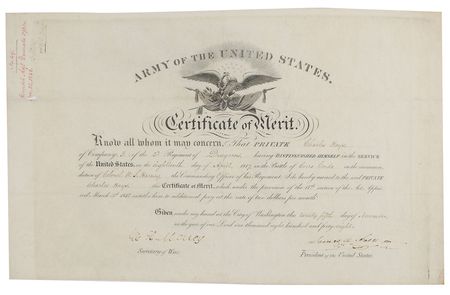 ARMY OF THE UNITED STATES.
Certificate of Merit.
Know all whom it may concern, That PRIVATE Charles
of Company of the 2d Regiment of Dragoons, having DISTINGUISHED HIMSELF in the SERVICE
of the United States, on the Eighteenth day of April 1847, in the Battle of Cerro Gordo on the recommen-
dation of Colonel W. S. Harney the Commanding Officer of his Regiment, I do hereby award to the said PRIVATE
Charles this Certificate of Merit, which under the provision of the 17th section of the Act, Appro-
ved March 3d 1847, entitles him to additional pay at the rate of two dollars per month.
Given under my hand at the City of Washington the twenty fifth day of
in the year of our Lord one thousand eight hundred and forty eight.
Secretary of War.
President of the United States.